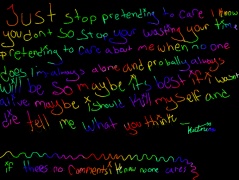 Just stop pretending to care I know
you dont SO stop your wasting your time
pretending to care about me when no one
does I'm always alone and probally always
will be so maybe it's best if I wasnt
alive maybe I should kill myself and
die tell me what you think
if theres no comments I know no one cares